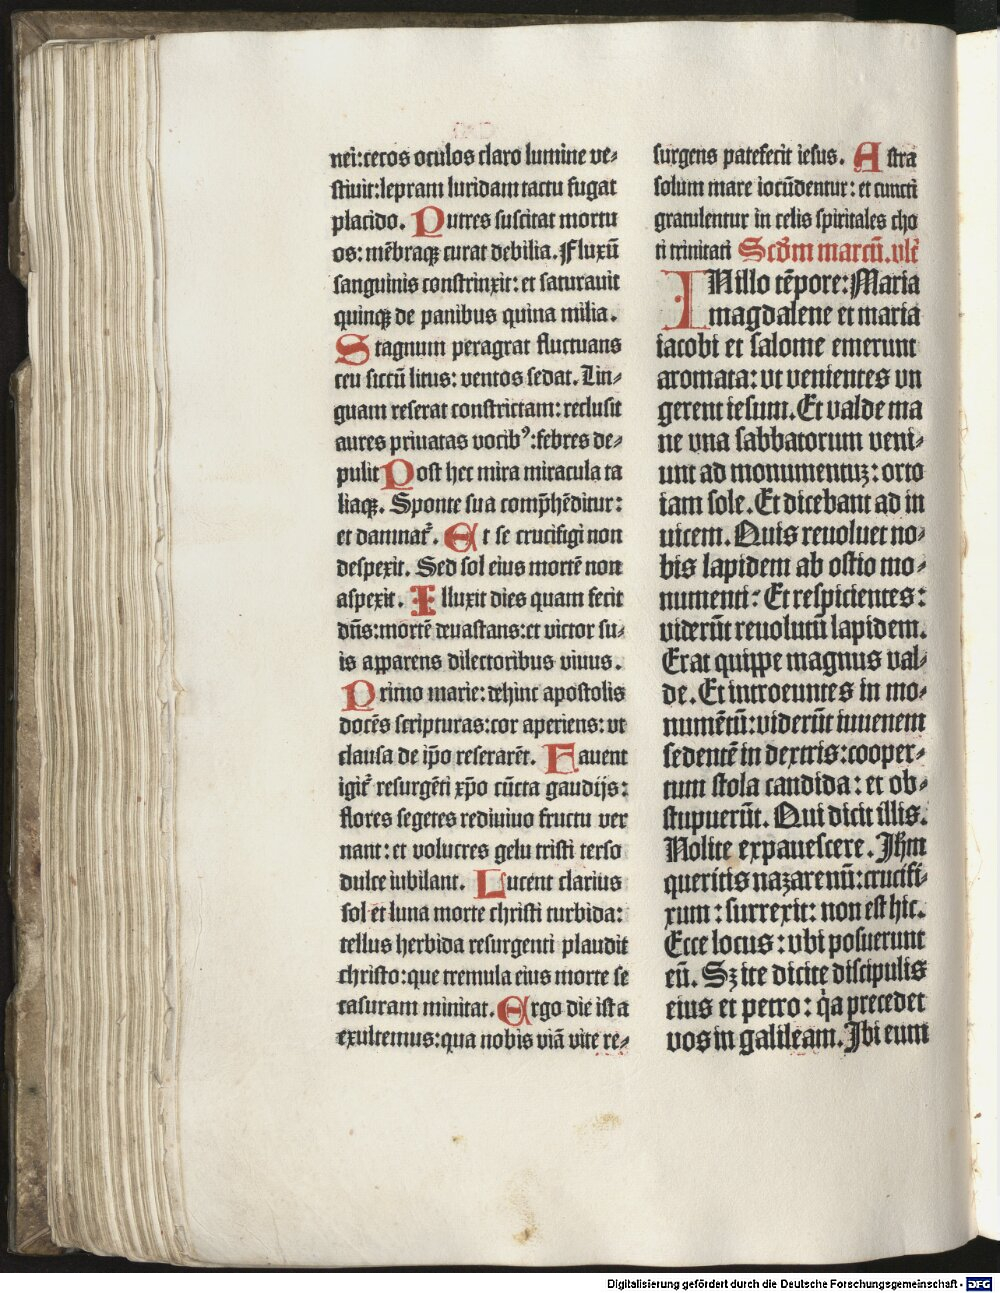 nei:cecos oculos claro lumine ve-
stiuit:lepram luridam tactu fugat
placido. Putres suscitat mortu
os: mēbraqꝫ curat debilia. Fluxū
sanguinis constrinxit: et saturauit
quinqꝫ de panibus quina milia.
Stagnum peragrat fluctuans
ceu siccū litus: ventos sedat. Lin-
guam reserat constrictam: reclusit
aures priuatas vocibꝰ:febres de-
pulit Post hec mira miracula ta
liaqꝫ. Sponte sua comp̄hēditur:
et damnat᷑. Et se crucifigi non
despexit. Sed sol eius mortē non
aspexit. Illuxit dies quam fecit
dn̄s:mortē deuastans:et victor su-
is apparens dilectoribus viuus.
Primo marie:dehinc apostolis
docēs scripturas:cor aperiens:vt
clausa de ip̄o reserarēt. Fauent
igit᷑ resurgēti xp̄o cūcta gaudijs:
flores segetes rediuiuo fructu ver
nant:et volucres gelu tristi terso
dulce iubilant. Lucent clarius
sol et luna morte christi turbida:
tellus herbida resurgenti plaudit
christo:que tremula eius morte se
casuram minitat. Ergo die ista
exultemus:qua nobis viā vite re-
surgens patefecit iesus. Astra
solum mare iocūdentur: et cuncti
gratulentur in celis spiritales cho
ri trinitati Scd̄m marcū. vlt̄
IN illo tēpore: Maria
magdalene et maria
iacobi et salome emerunt
aromata: vt venientes vn
gerent iesum. Et valde ma
ne vna sabbatorum veni-
unt ad monumentuꝫ: orto
iam sole. Et dicebant ad in
uicem. Quis reuoluet no-
bis lapidem ab ostio mo-
numenti: Et respicientes:
viderūt reuolutū lapidem.
Erat quippe magnus val-
de. Et introeuntes in mo-
numētū:viderūt iuuenem
sedentē in dextris:cooper-
tum stola candida: et ob-
stupuerūt. Qui dicit illis.
Nolite expauescere. Jhm
queritis nazarenū:crucifi-
xum: surrexit: non est hic.
Ecce locus: vbi posuerunt
eū. Sꝫ ite dicite discipulis
eius et petro: qͥa precedet
vos in galileam. Ibi eum
Digitalisierung gefördert durch die Deutsche Forschungsgemeinschaft - DFG